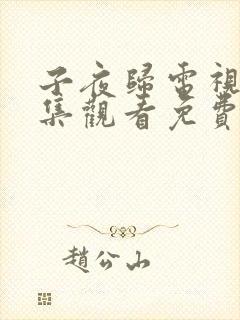 子夜歸電視
集觀看免費
趙公山